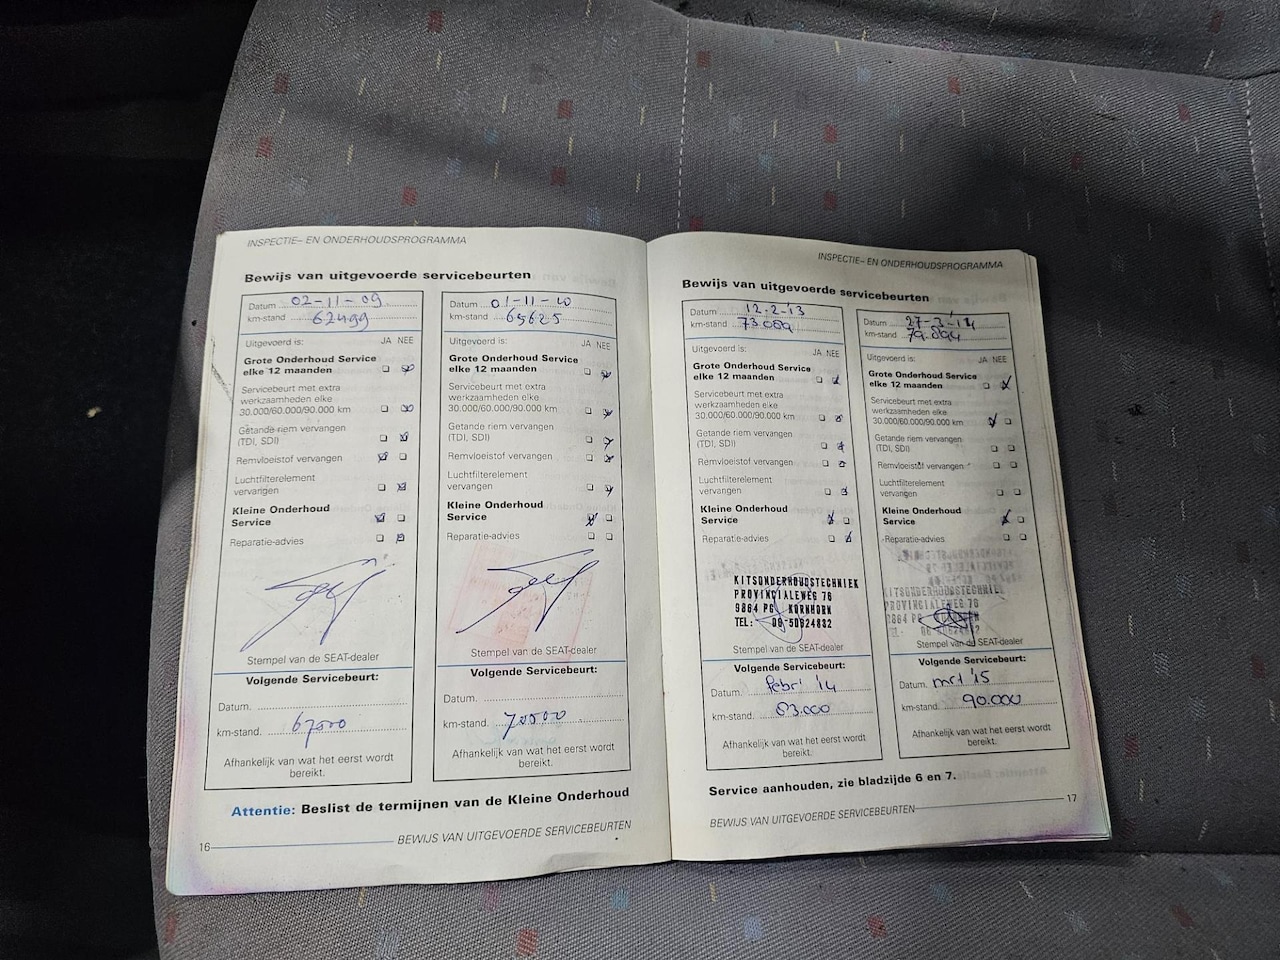 INSPECTIE- EN ONDERHOUDSPROGRAMMA
Bewijs van uitgevoerde servicebeurten
Datum 02-11-09
km-stand 62499
Uitgevoerd is: JA NEE
Grote Onderhoud Service
elke 12 maanden
Servicebeurt met extra
werkzaamheden elke
30.000/60.000/90.000 km
Getande riem vervangen
(TDI, SDI)
Remvloeistof vervangen
Luchtfilterelement
vervangen
Kleine Onderhoud
Service
Reparatie-advies
Stempel van de SEAT-dealer
Volgende Servicebeurt:
Datum.
km-stand.
Afhankelijk van wat het eerst wordt
bereikt.
Datum 01-11-10
km-stand 65625
Uitgevoerd is: JA NEE
Grote Onderhoud Service
elke 12 maanden
Servicebeurt met extra
werkzaamheden elke
30.000/60.000/90.000 km
Getande riem vervangen
(TDI, SDI)
Remvloeistof vervangen
Luchtfilterelement
vervangen
Kleine Onderhoud
Service
Reparatie-advies
Stempel van de SEAT-dealer
Volgende Servicebeurt:
Datum.
km-stand.
Afhankelijk van wat het eerst wordt
bereikt.
Attentie: Beslist de termijnen van de Kleine Onderhoud
16 BEWIJS VAN UITGEVOERDE SERVICEBEURTEN
INSPECTIE- EN ONDERHOUDSPROGRAMMA
Bewijs van uitgevoerde servicebeurten
Datum 12-2-'13
km-stand
Uitgevoerd is: JA NEE
Grote Onderhoud Service
elke 12 maanden
Servicebeurt met extra
werkzaamheden elke
30.000/60.000/90.000 km
Getande riem vervangen
(TDI, SDI)
Remvloeistof vervangen
Luchtfilterelement
vervangen
Kleine Onderhoud
Service
Reparatie-advies
KITSONDERHOUDSTECHNIEK
PROVINCIALEWEG 76
9864 PG KORNHORN
TEL: 06-50624832
Stempel van de SEAT-dealer
Volgende Servicebeurt:
Datum. febr '14
km-stand. 83.000
Afhankelijk van wat het eerst wordt
bereikt.
Datum 27-3-'14
km-stand 79.894
Uitgevoerd is: JA NEE
Grote Onderhoud Service
elke 12 maanden
Servicebeurt met extra
werkzaamheden elke
30.000/60.000/90.000 km
Getande riem vervangen
(TDI, SDI)
Remvloeistof vervangen
Luchtfilterelement
vervangen
Kleine Onderhoud
Service
Reparatie-advies
KITSONDERHOUDSTECHNIEK
PROVINCIALEWEG 76
Stempel van de SEAT-dealer
Volgende Servicebeurt:
Datum. mrt '15
km-stand. 90.000
Afhankelijk van wat het eerst wordt
bereikt.
Service aanhouden, zie bladzijde 6 en 7.
BEWIJS VAN UITGEVOERDE SERVICEBEURTEN 17